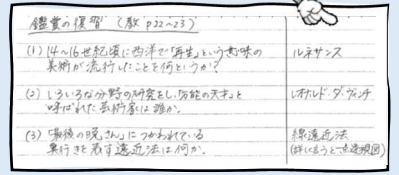 鑑賞の復習 (教 P22~23)
(1) 14~16世紀頃に西洋で「再生」という意味の
美術が流行したことを何というか?
ルネサンス
(2) いろいろな分野の研究をし、「万能の天才」と
呼ばれた芸術家は誰か。
レオナルド・ダ・ヴィンチ
(3) 「最後の晩さん」につかわれている
奥行きを表す遠近法は何か。
線遠近法
(詳しく言うと一点透視図)